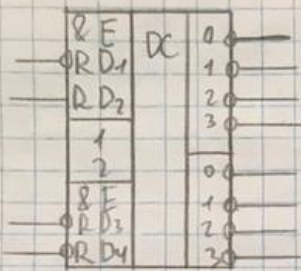 & E
RD1
RD2
1
2
& E
RD3
RD4
DC
0
1
2
3
0
1
2
3